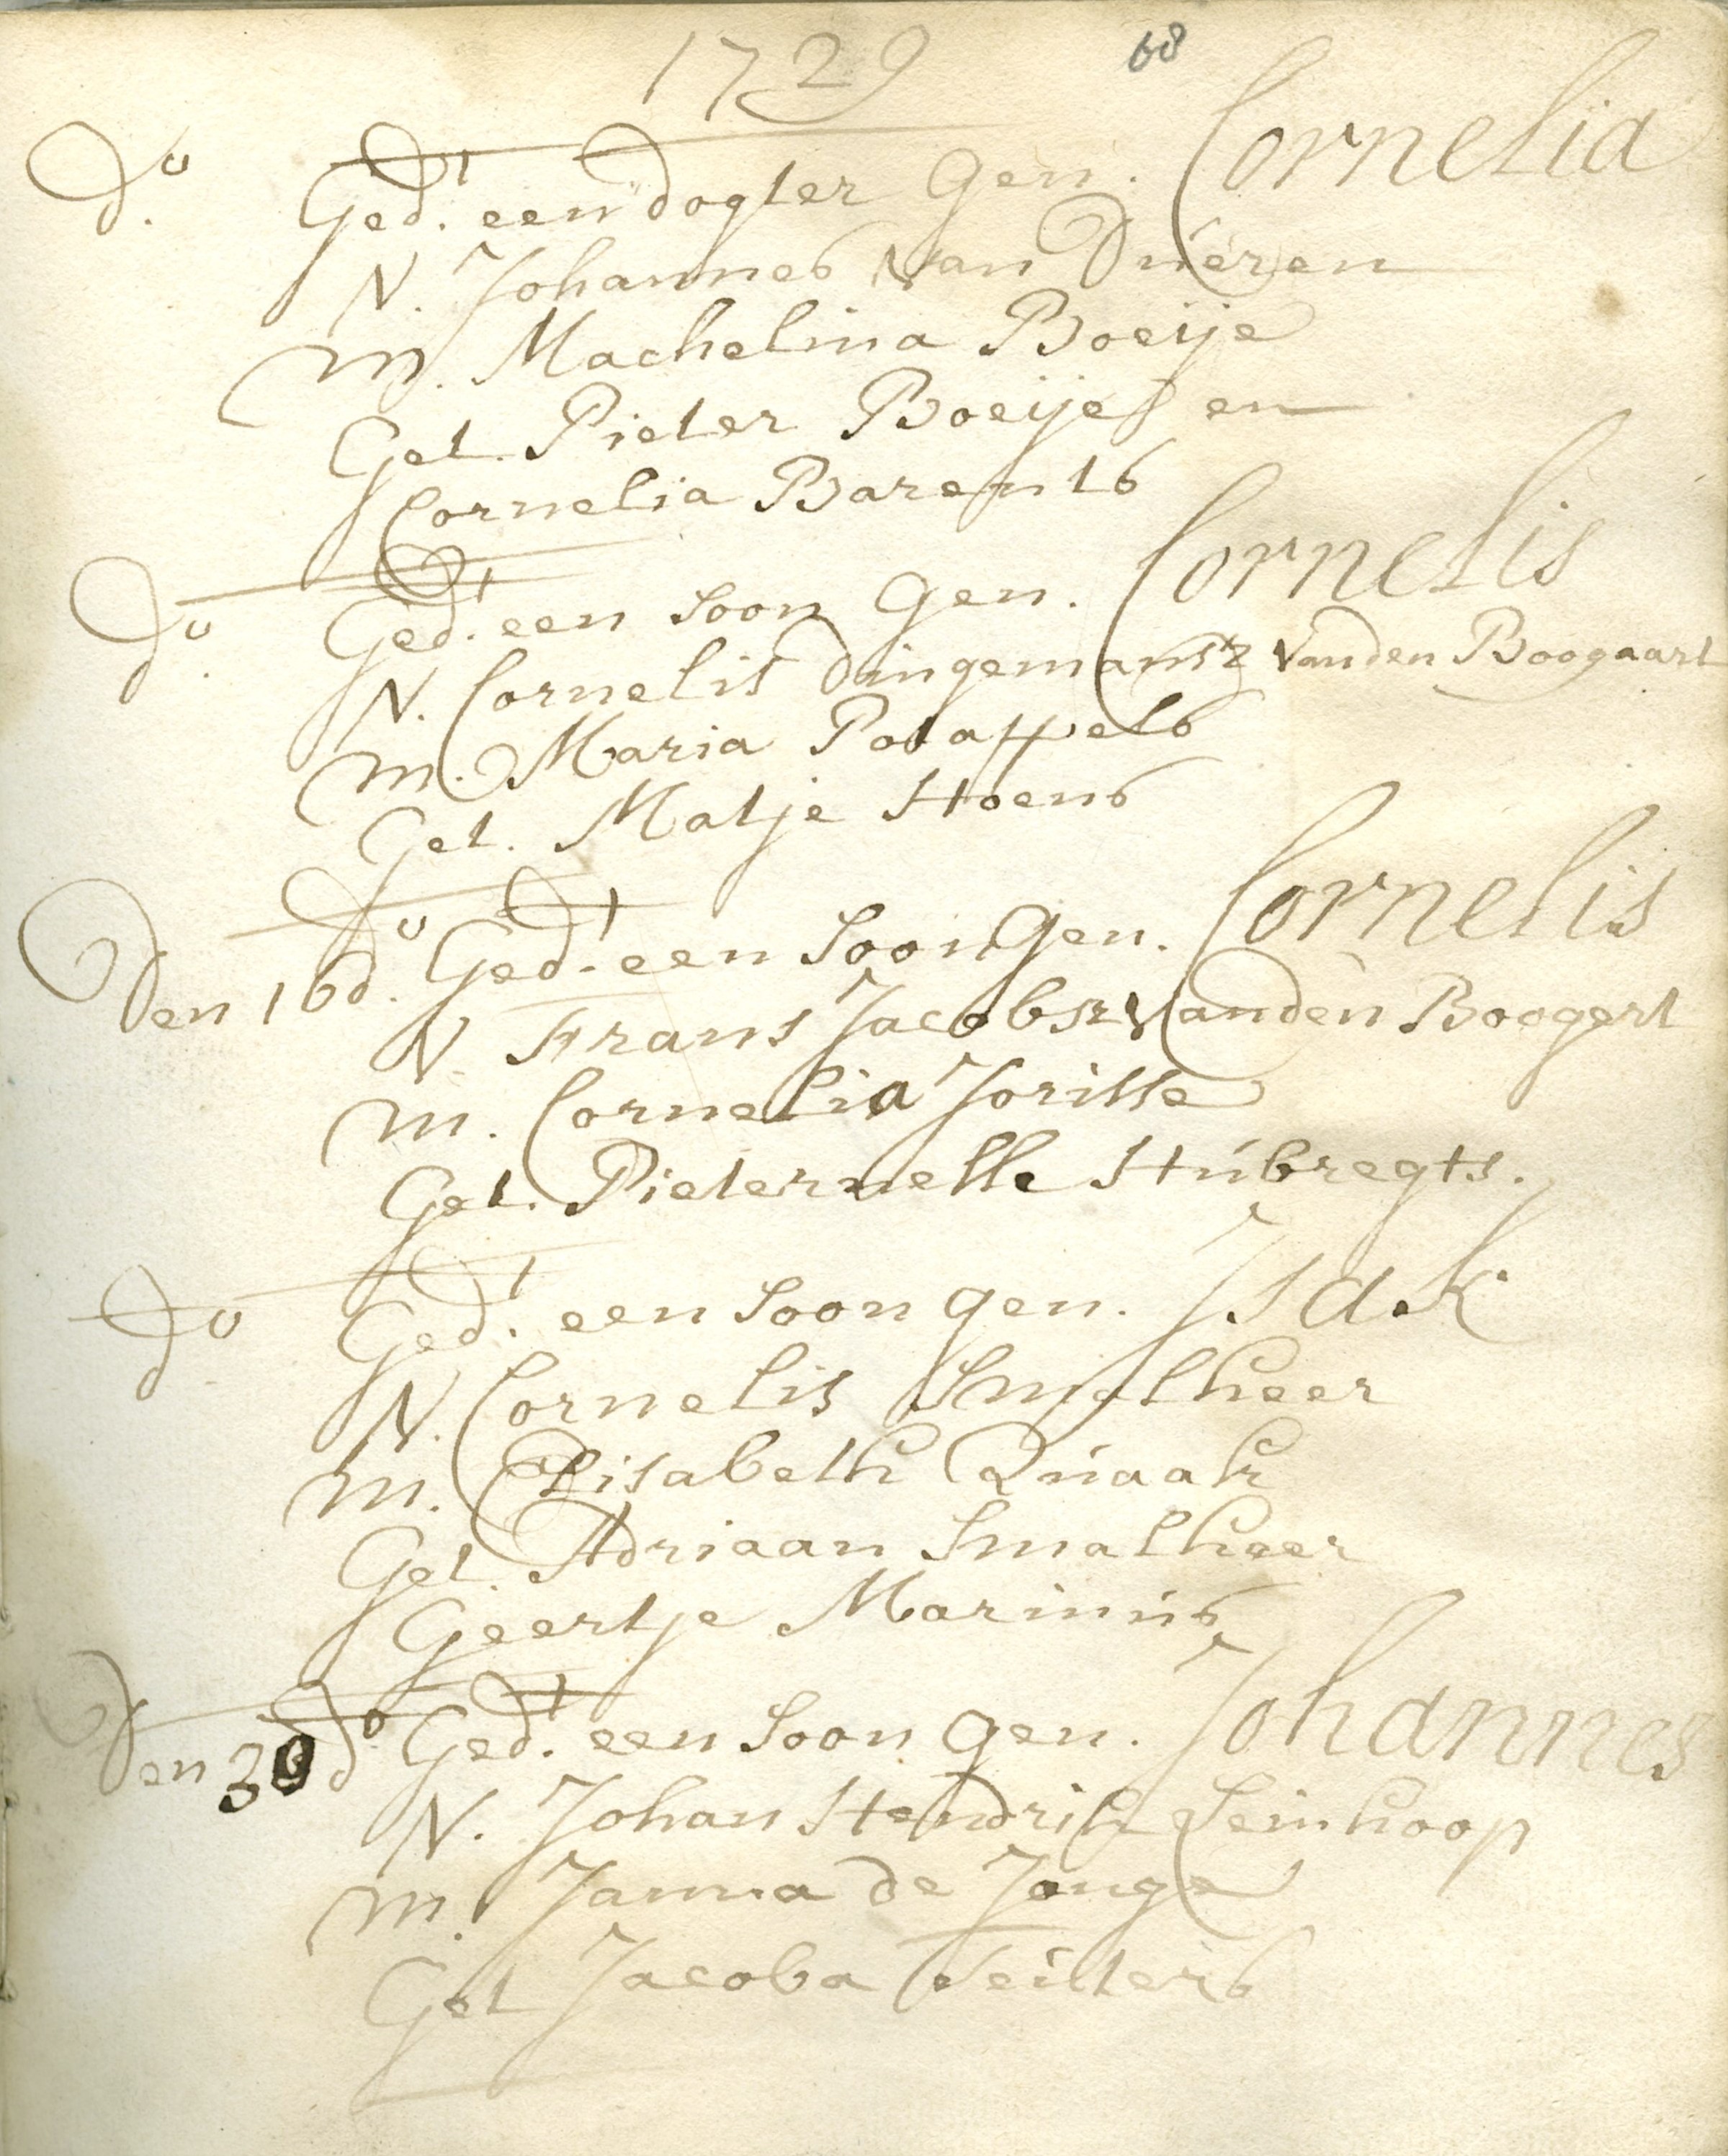 1729 68
d.o Ged.t een dogter gen. Cornelia
V. Johannes van Dueren
M. Machelina Boeije
Get. Pieter Boeijes en
Cornelia Barents
d.o Ged.t een soon gen. Cornelis
V. Cornelis dingemansz vanden Boogaart
M. Maria Potappels
Get. Matje Hoens
Den 16 d.o Ged.t een soon gen. Cornelis
V. Frans Jacobsz vanden Boogert
M. Cornelia Jorisse
Get. Pieternelle Hubregts.
d.o Ged.t een soon gen. Isak
V. Cornelis Smalheer
M. Elisabeth Quaak
Get. Adriaan Smalheer
Geertje Marinus
Den 30 d.o Ged.t een soon gen. Johannes
V. Johan Hendrik Leinhoop
M. Janna de Jonge
Get Jacoba